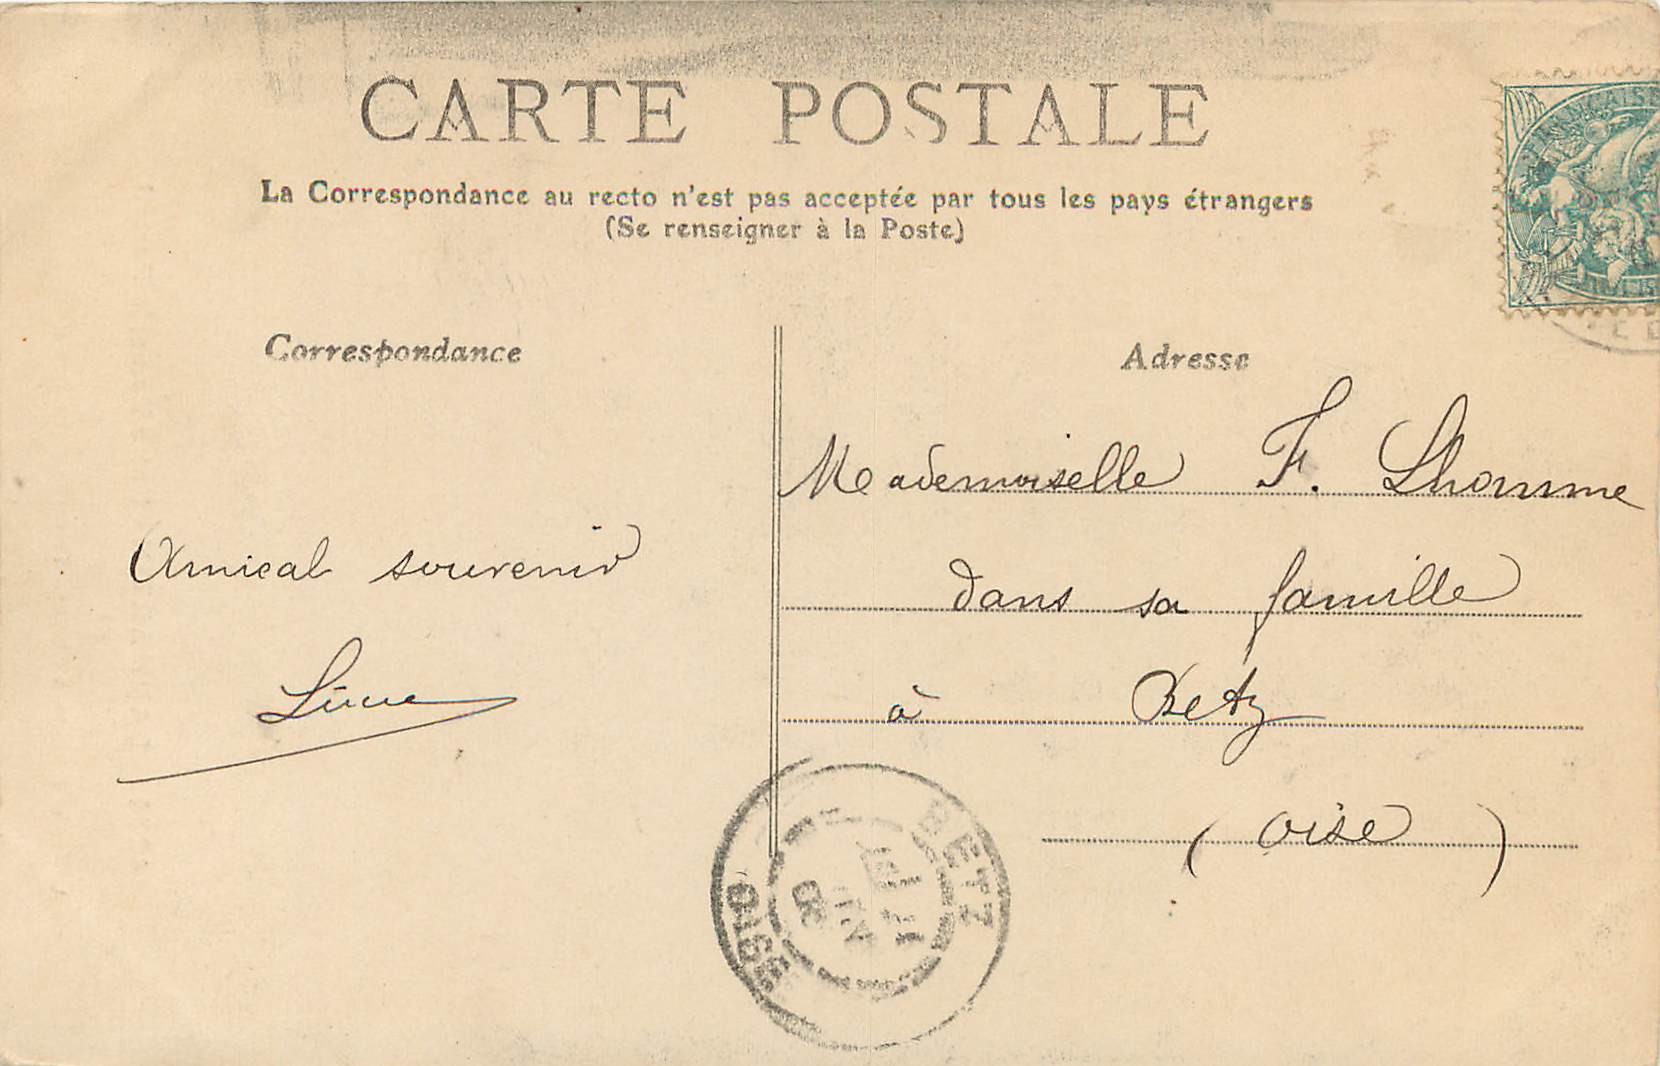 CARTE POSTALE
La Correspondance au recto n'est pas acceptée par tous les pays étrangers
(Se renseigner à la Poste)
Correspondance
Amical souvenir
Adresse
Mademoiselle F. Lhomme
dans sa famille
à Betz
(Oise)
BETZ
OISE